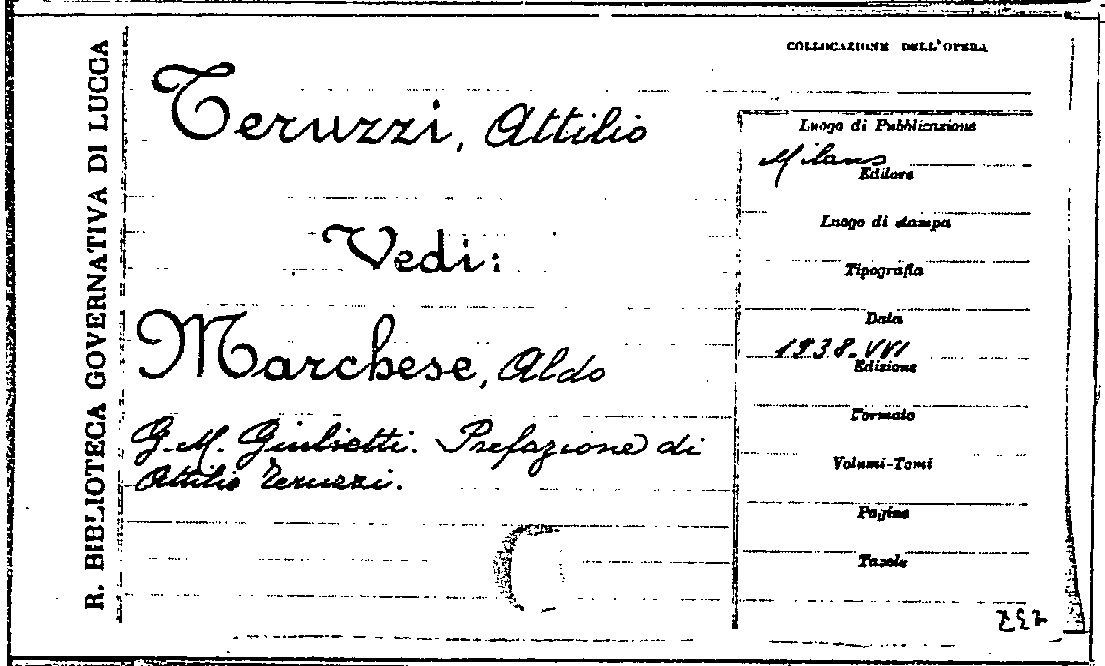 R. BIBLIOTECA GOVERNATIVA DI LUCCA
COLLOCAZIONE DELL'OPERA
Teruzzi, Attilio
Vedi:
Marchese, Aldo
G. M. Giulietti. Prefazione di
Attilio Teruzzi.
Luogo di Pubblicazione
Milano
Editore
Luogo di stampa
Tipografia
Data
1938-XVI
Edizione
Formato
Volumi-Tomi
Pagine
Tavole